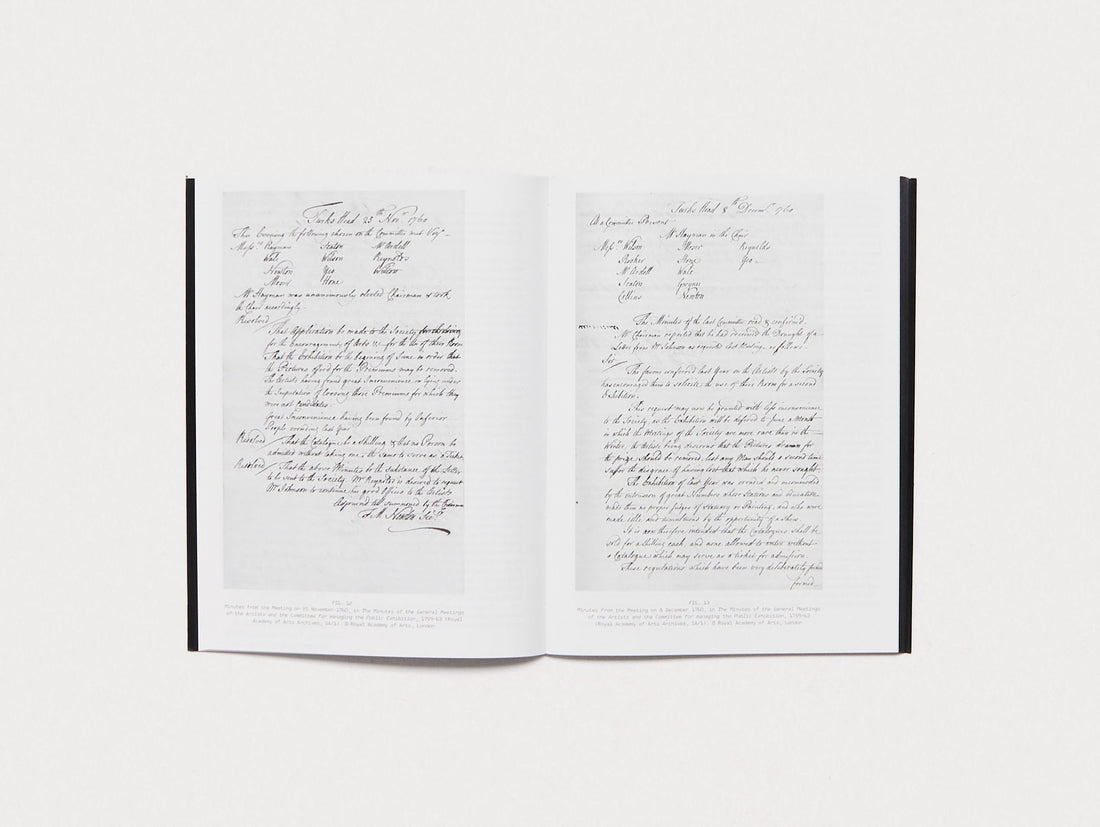 Turks Head 25th Novr. 1760
This Evening the following chosen on the Committee met Viz.
Messrs. Hayman Seaton Mc Ardell
Wale Wilson Reynolds
Newton Yeo
Moser Hone
Mr Hayman was unanimously elected Chairman & took
the Chair accordingly.
Resolved
That Application be made to the Society
for the Encouragement of Arts &c for the Use of their Room
That the Exhibition be the beginning of June in order that
the Pictures offerd for the Premiums may be removed.
The Artists having found great Inconvenience, in lying under
the Imputation of looseing those Premiums for which they
were not Candidates.
Great Inconvenience having been found by Inferior
People crouding last Year
Resolved That the Catalogue be a Shilling & that no Person be
admitted without taking one, the same to serve as a Ticket
Resolved That the above Minutes be the Substance of the Letter
to be sent to the Society. Mr Reynolds is desired to request
Mr Johnson to continue his good offices to the Artists
Adjourned till summoned by the Chairman
F. M. Newton Secy.
FIG. 12
Minutes from the Meeting on 25 November 1760, in The Minutes of the General Meetings
of the Artists and the Committee for managing the Public Exhibition, 1759-63 (Royal
Academy of Arts Archives, SA/1). © Royal Academy of Arts, London
Turks Head 8th Decemr. 1760
At a Committee Present
Mr Hayman in the Chair
Messrs. Wilson Moser Reynolds
Rooker Hone Yeo
Mc Ardell Wale
Seaton Gwynn
Collins Newton
The Minutes of the last Committee read & confirmed.
Mr Chairman reported that he had received the Draught of a
Letter from Mr Johnson as requested last Meeting as follows
Sir
The favour conferred last Year on the Artists by the Society
has encouraged them to solicite the use of their Room for a second
Exhibition.
This request may now be granted with less inconvenience
to the Society, as the Exhibition will be deferred to June a Month
in which the Meetings of the Society are more rare than in the
Winter, the Artists being desirous that the Pictures drawn for
the prize should be removed, lest any Man should a second time
suffer the disgrace of having lost that which he never sought.
The Exhibition of last Year was crouded and incommoded
by the intrusion of great Numbers whose stations and education
made them no proper judges of Statuary or Painting, and who were
made idle and tumultuous by the opportunity of a Shew.
It is now therefore intended that the Catalogues shall be
sold for a shilling each, and none allowed to enter without
a Catalogue which may serve as a ticket for admission.
These regulations which have been very deliberately
formed
FIG. 13
Minutes from the Meeting on 8 December 1760, in The Minutes of the General Meetings
of the Artists and the Committee for managing the Public Exhibition, 1759-63
(Royal Academy of Arts Archives, SA/1). © Royal Academy of Arts, London